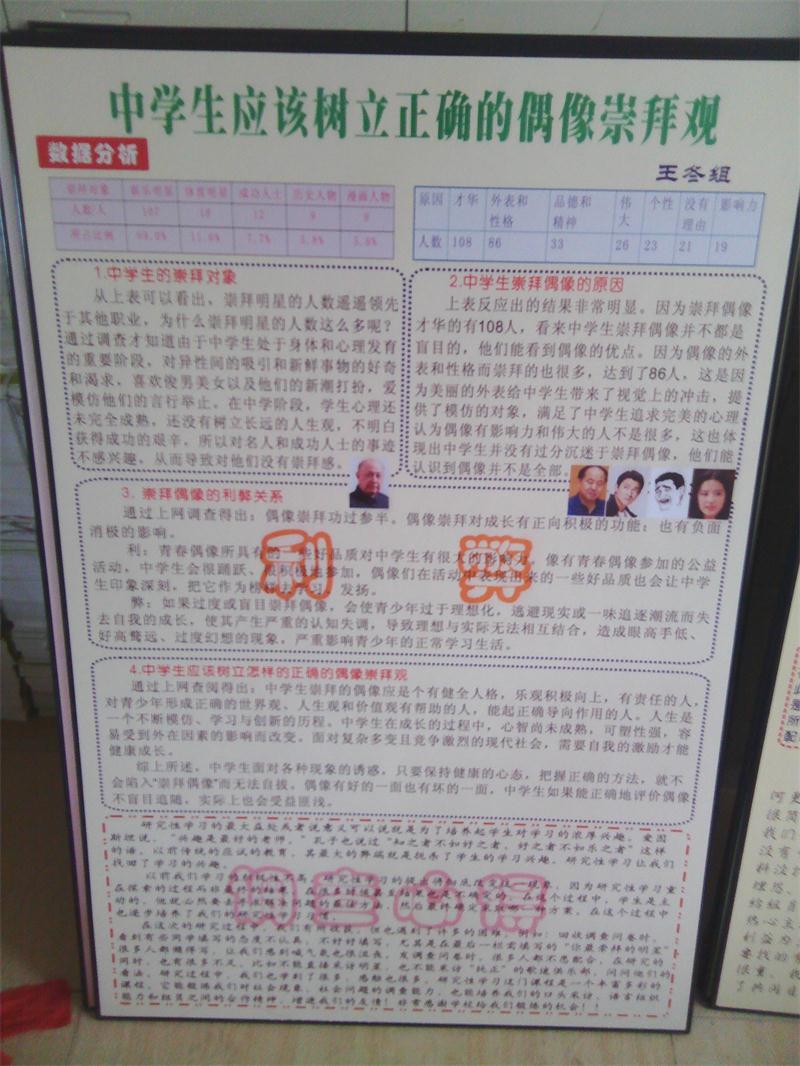 中学生应该树立正确的偶像崇拜观
数据分析
王冬组
崇拜对象 娱乐明星 体育明星 成功人士 历史人物 漫画人物
人数/人 107 18 12 9 9
所占比例 69.0% 11.6% 7.7% 5.8% 5.8%
原因 才华 外表和性格 品德和精神 伟大 个性 没有理由 影响力
人数 108 86 33 26 23 21 19
1.中学生的崇拜对象
从上表可以看出，崇拜明星的人数遥遥领先
于其他职业，为什么崇拜明星的人数这么多呢？
通过调查才知道由于中学生处于身体和心理发育
的重要阶段，对异性间的吸引和新鲜事物的好奇
和渴求，喜欢俊男美女以及他们的新潮打扮，爱
模仿他们的言行举止。在中学阶段，学生心理还
未完全成熟，还没有树立长远的人生观，不明白
获得成功的艰辛。所以对名人和成功人士的事迹
不感兴趣，从而导致对他们没有崇拜感。
2.中学生崇拜偶像的原因
上表反应出的结果非常明显。因为崇拜偶像
才华的有108人，看来中学生崇拜偶像并不都是
盲目的，他们能看到偶像的优点。因为偶像的外
表和性格而崇拜的也很多，达到了86人，这是因
为美丽的外表给中学生带来了视觉上的冲击，提
供了模仿的对象，满足了中学生追求完美的心理
认为偶像有影响力和伟大的人不是很多，这也体
现出中学生并没有过分沉迷于崇拜偶像，他们能
认识到偶像并不是全部。
3. 崇拜偶像的利弊关系
通过上网调查得出：偶像崇拜功过参半。偶像崇拜对成长有正向积极的功能；也有负面
消极的影响。
利 弊
利：青春偶像所具有的一些好品质对中学生有很大的影响力。像有青春偶像参加的公益
活动，中学生会很踊跃、很积极地参加，偶像们在活动中表现出来的一些好品质也会让中学
生印象深刻，把它作为榜样去学习、发扬。
弊：如果过度或盲目崇拜偶像，会使青少年过于理想化，逃避现实或一味追逐潮流而失
去自我的成长，使其产生严重的认知失调，导致理想与实际无法相互结合，造成眼高手低、
好高骛远、过度幻想的现象，严重影响青少年的正常学习生活。
4.中学生应该树立怎样的正确的偶像崇拜观
通过上网查阅得出：中学生崇拜的偶像应是个有健全人格，乐观积极向上，有责任的人，
对青少年形成正确的世界观、人生观和价值观有帮助的人，能起正确导向作用的人。人生是
一个不断模仿、学习与创新的历程。中学生在成长的过程中，心智尚未成熟，可塑性强，容
易受到外在因素的影响而改变。面对复杂多变且竞争激烈的现代社会，需要自我的激励才能
健康成长。
综上所述，中学生面对各种现象的诱惑，只要保持健康的心态，把握正确的方法，就不
会陷入“崇拜偶像”而无法自拔。偶像有好的一面也有坏的一面，中学生如果能正确地评价偶像
不盲目追随，实际上也会受益匪浅。
研究性学习的最大益处或者说意义可以说就是为了培养起学生对学习的浓厚兴趣。爱因
斯坦说，“兴趣是最好的老师，”孔子也说过“知之者不如好之者，好之者不如乐之者”这样
的话，以前传统的应试的教育，其最大的弊端就是扼杀了学生的学习兴趣。研究性学习让我们
找回了学习的兴趣。
以前我们学习的积极性不高，研究性学习的提出将彻底改变这一现象，因为研究性学习重
在探索的过程而非最终的结果，
动的，他就必然要去
也逐步培养了我们的研究性学习习惯。
在这次的研究过程中，我们有所收获，但也遇到了许多的困难。例如：回收调查问卷时，
看到有些同学填写的态度不认真，不好好填写，尤其是在最后一栏需填写的“你最崇拜的明星”
很多人都瞎得写，让我们感到喊气最也很沮丧，发调查问卷时，很多人都不愿配合。在研究的
同时，也有很多不足，比如不能直接采访明星，也不能采访“纯正”的歌迷俱乐部，问问他们的
看法。研究过程中，我们也学到了很多，感触也很多，研究性学习这门课程是一个丰富多彩的
课程，它能锻炼我们对社会现象、社会问题的调查能力，也能培养我们的口头采访、语言组织
能力和组员之间的合作精神，增进我们的友情！非常感谢学校给我们锻炼的机会！！
心得
河更
很简
我们
没有
料没
理恩
给组
热心主
利益为
要找的
很重。
了两